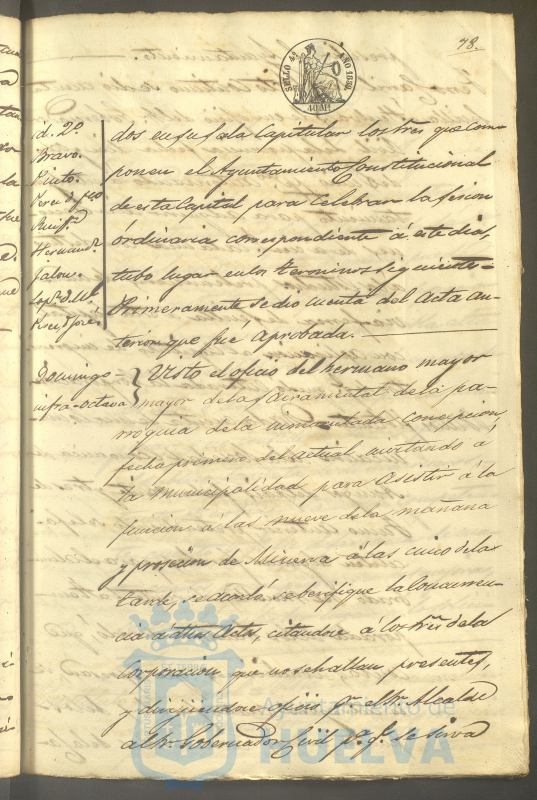 78.
SELLO 4º AÑO 1859.
40 MS
d. 2º
Bravo.
Pinto.
Perez d. Fco
Quiñs
Hernandz
Jalon.
Lopz d. M.
Perez, d. José
dos en su Sala Capitular los Sres que com-
ponen el Ayuntamiento Constitucional
de esta Capital para celebrar la sesion
órdinaria correspondiente á este dia,
tubo lugar en los terminos siguientes=
Primeramente se dio cuenta del Acta an-
terior que fué aprobada.
Domingo
infra-octava
Visto el oficio del hermano mayor
mayor de la Sacramental de la pa-
rroquia de la inmaculada Concepcion,
fecha primero del actual invitando á
la Municipalidad para asistir á la
funcion á las nueve de la mañana
y prosecion de Minerva á las cinco de la
tarde, se acordó se berifique la concurren-
cia á dhos Actos, citandose á los Sres de la
Corporacion que no se hallan presentes,
y dirijiendose oficio pr. el Sr. Alcalde
al Sr. Gobernador Civil pa. qe. se sirva
Ayuntamiento de
HUELVA